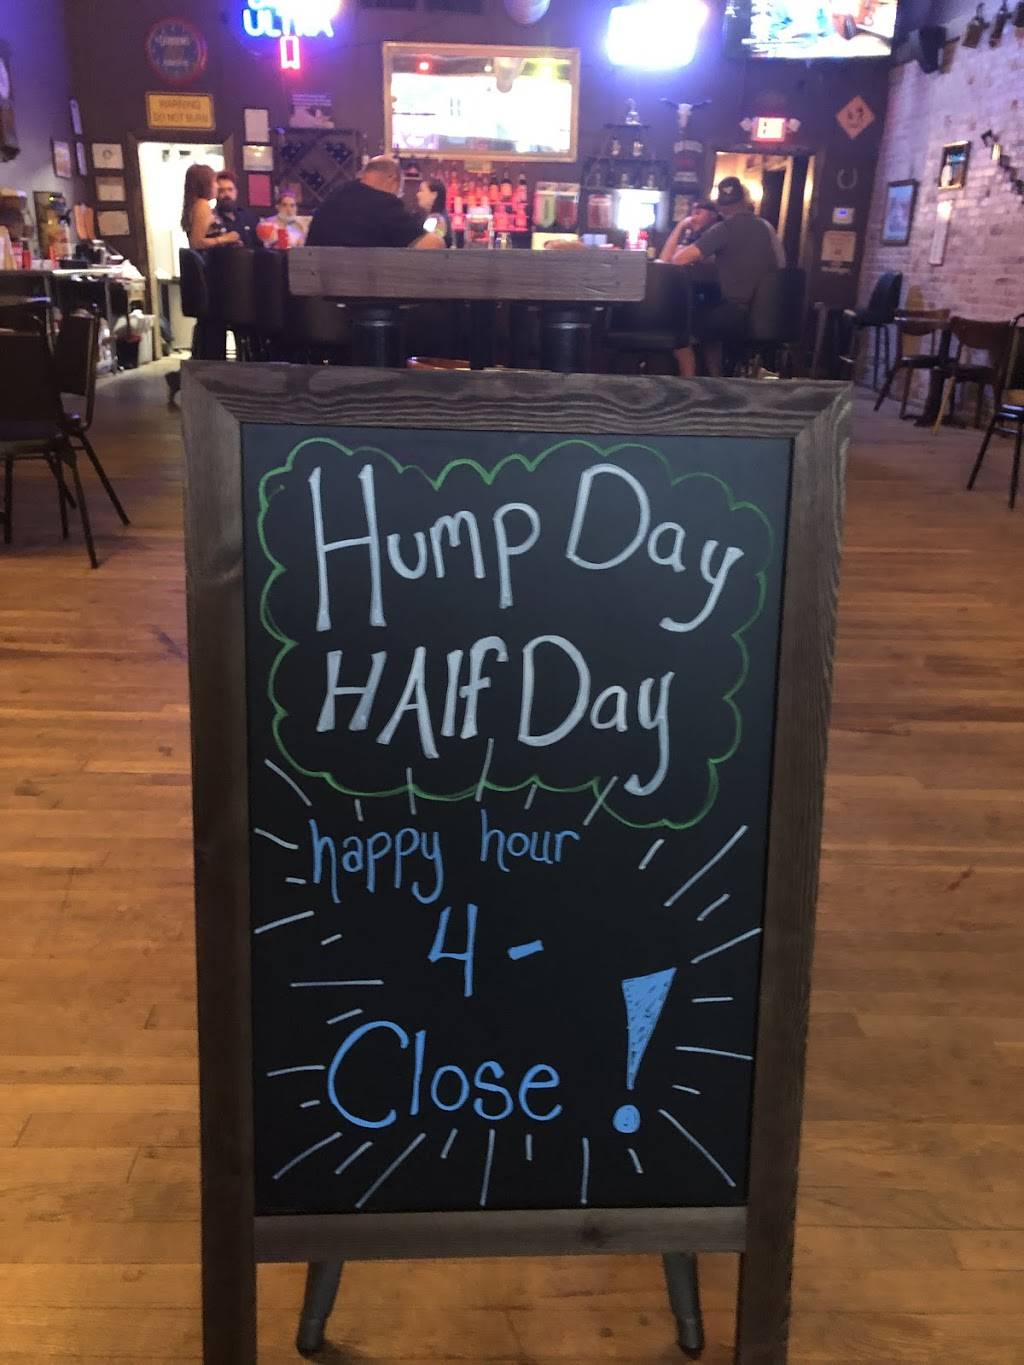 ULTRA
WARNING
DO NOT BURN
EXIT
Hump Day
HAlf Day
happy hour
4 -
Close !